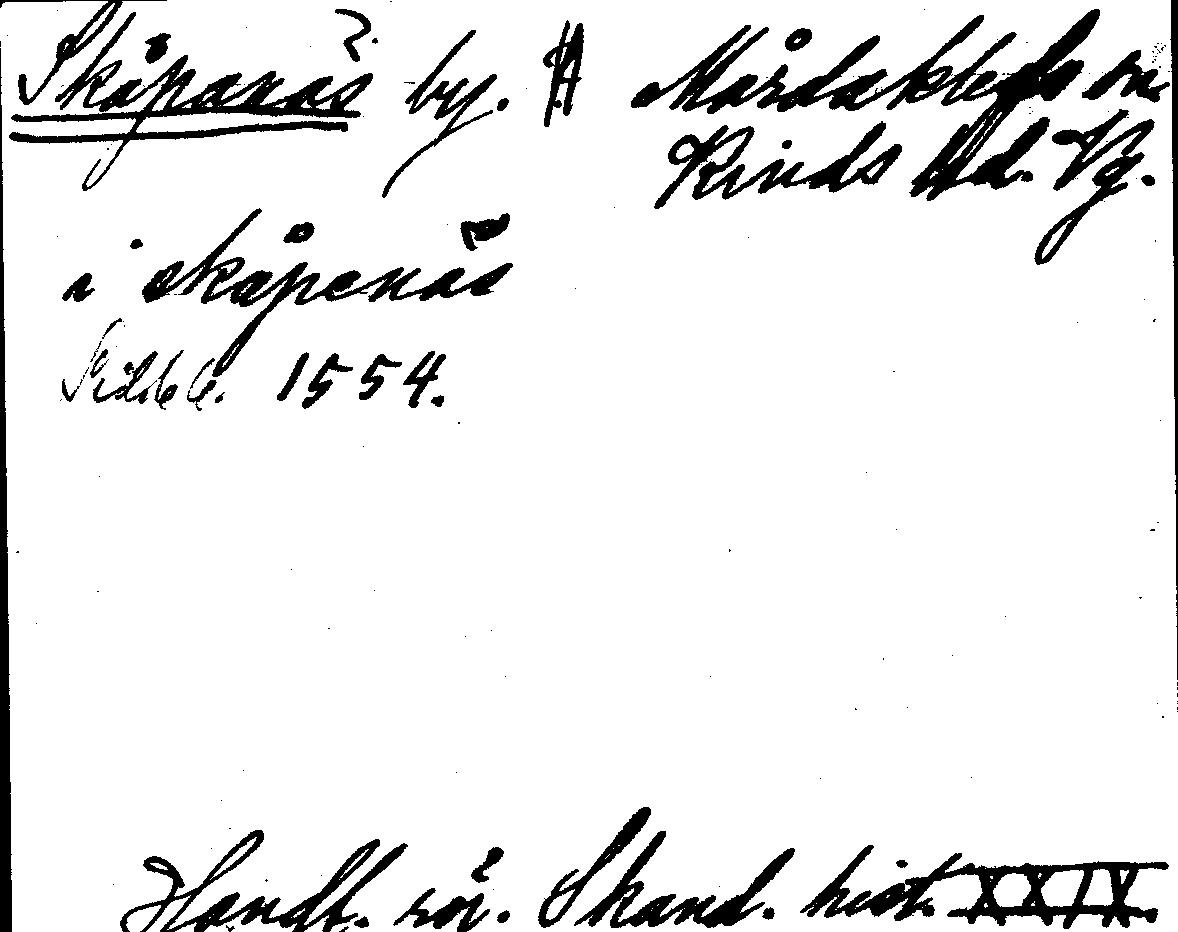 Skåpanäs by. Mårdaklefs sn.
Kinds Hd. Vg.
i skåpenäs
1554.
Handl. rör. Skand. hist. XXIX.